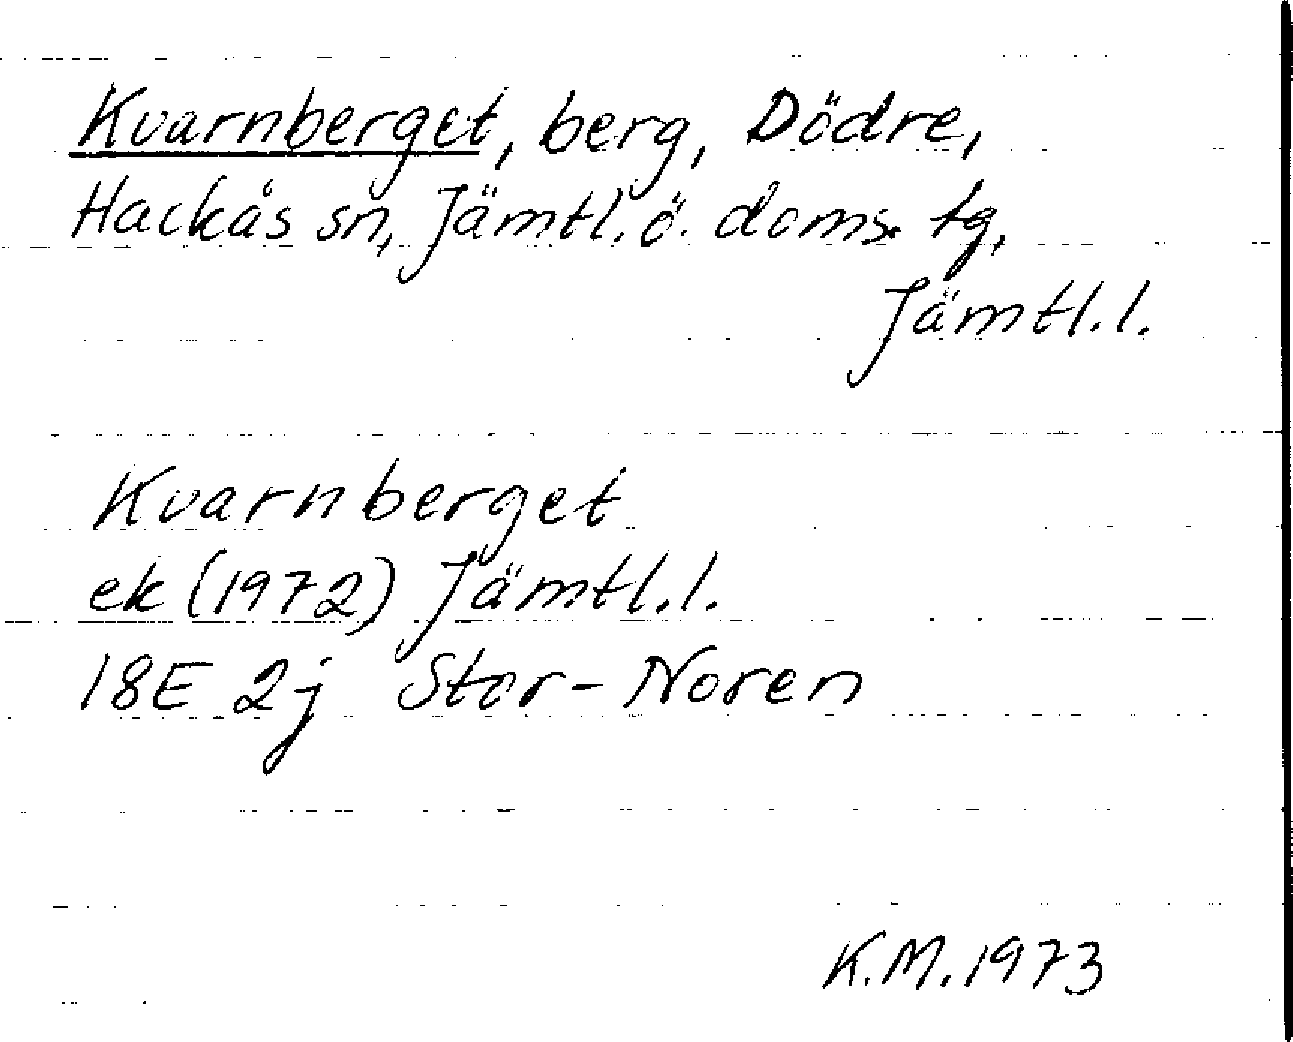 Kvarnberget, berg, Dödre,
Hackås sn, Jämtl. ö. doms. tg,
Jämtl. l.
Kvarnberget
ek (1972) Jämtl. l.
18E 2j Stor-Noren
K.M. 1973